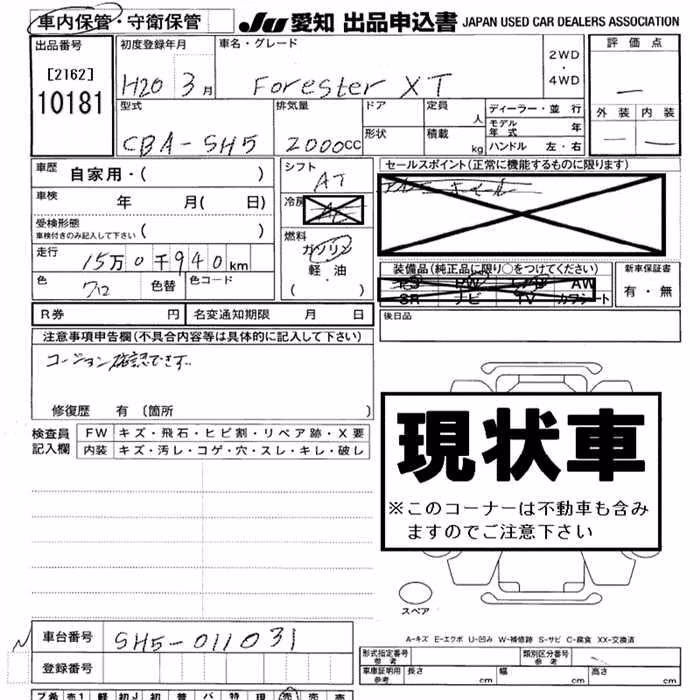 車内保管・守衛保管
JU 愛知 出品申込書 JAPAN USED CAR DEALERS ASSOCIATION
出品番号
[2162]
10181
初度登録年月
H20 3月
車名・グレード
Forester XT
2WD
・
4WD
評価点
—
外装 内装
— —
型式
CBA-SH5
排気量
2000cc
ドア
形状
定員
人
積載
kg
ディーラー・並行
モデル年式 年
ハンドル 左・右
車歴 自家用・( )
車検 年 月( 日)
受検形態
車検付きのみ記入して下さい ( )
走行 15万0千940km
色 クロ 色替 色コード
シフト
AT
冷房
燃料
ガソリン
軽・油
・
( )
セールスポイント(正常に機能するものに限ります)
装備品(純正品に限り○をつけてください)
PW AW
SR ナビ TV カワシート
新車保証書
有・無
R券 円 名変通知期限 月 日
後日品
注意事項申告欄(不具合内容等は具体的に記入して下さい)
コーション確認できず..
修復歴 有(箇所 )
検査員記入欄
FW キズ・飛石・ヒビ割・リペア跡・X要
内装 キズ・汚レ・コゲ・穴・スレ・キレ・破レ
現状車
※このコーナーは不動車も含み
ますのでご注意下さい
スペア
A-キズ E-エクボ U-凹み W-補修跡 S-サビ C-腐食 XX-交換済
車台番号 SH5-011031
登録番号
形式指定番号 参考
類別区分番号 参考
車庫証明用 参考 長さ cm 幅 cm 高さ cm